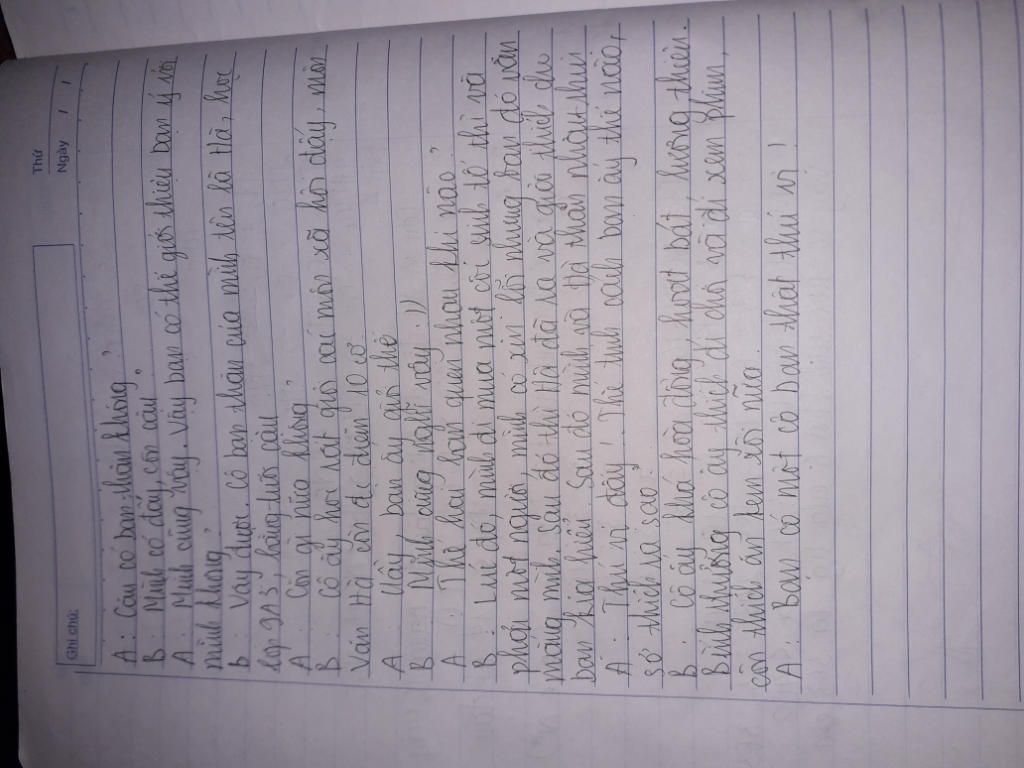 Ghi chú:
Thứ
Ngày / /
A: Cậu có bạn thân không?
B: Mình có đấy, còn cậu
A: Mình cũng vậy. Vậy bạn có thể giới thiệu bạn ý với
mình không?
B: Vậy được. Cô bạn thân của mình tên là Hà, học
lớp 9A3, bằng tuổi cậu
A: Còn gì nữa không?
B: Cô ấy học rất giỏi các môn xã hội đấy, môn
Văn Hà còn đc điểm 10 cơ.
A: Uầy, bạn ấy giỏi thế
B: Mình cũng nghĩ vậy :))
A: Thế hai bạn quen nhau khi nào?
B: Lúc đó, mình đi mua một cốc sinh tố thì va
phải một người mình có xin lỗi nhưng bạn đó vẫn
mắng mình, sau đó thì Hà đã ra và giải thích cho
bạn kia hiểu. Sau đó mình và Hà thân nhau hơn
A: Thú vị đấy! Thế tính cách bạn ấy thế nào,
sở thích ra sao?
B: Cô ấy khá hòa đồng, hoạt bát, lương thiện.
Bình thường cô ấy thích đi chơi và đi xem phim,
còn thích ăn kem xôi nữa.
A: Bạn có một cô bạn thật thú vị!